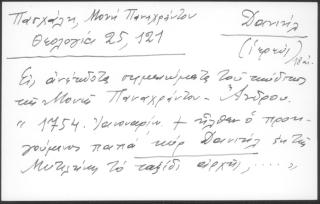 Πασχάλη, Μονή Παναχράντου
Θεολογία 25, 121
Δανιήλ
(ἱερεύς) 18 αἰ.
Εἰς ἀνέκδοτα σημειώματα τοῦ κώδικος
τῆς Μονῆς Παναχράντου - Ἄνδρου.
" 1754. Ἰανουαρίῳ + ἦλθεν ὁ προη-
γούμενος παπά κύρ Δανιήλ ἐκ τῆς
Μυτιλήνης τό ταξίδι ἀρχῆς, .... "